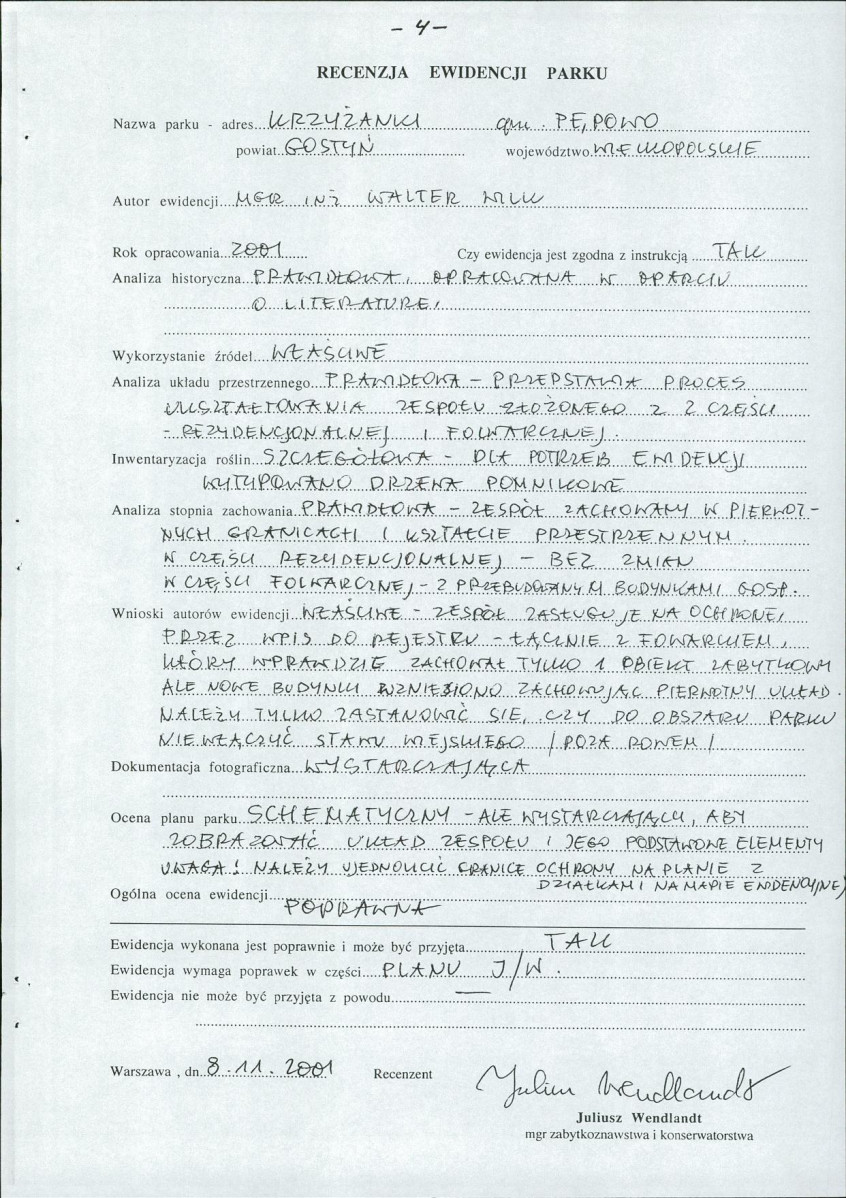 - 4 -
RECENZJA EWIDENCJI PARKU
Nazwa parku - adres KRZYŻANKI gm. PĘPOWO
powiat GOSTYŃ województwo WIELKOPOLSKIE
Autor ewidencji MGR INŻ WALTER WILK
Rok opracowania 2001 Czy ewidencja jest zgodna z instrukcją TAK
Analiza historyczna PRAWIDŁOWA, OPRACOWANA W OPARCIU
O LITERATURĘ,
Wykorzystanie źródeł WŁAŚCIWE
Analiza układu przestrzennego PRAWIDŁOWA - PRZEDSTAWIA PROCES
UKSZTAŁTOWANIA ZESPOŁU ZŁOŻONEGO Z 2 CZĘŚCI
- REZYDENCJONALNEJ I FOLWARCZNEJ.
Inwentaryzacja roślin SZCZEGÓŁOWA - DLA POTRZEB EWIDENCJI
WYTYPOWANO DRZEWA POMNIKOWE
Analiza stopnia zachowania PRAWIDŁOWA - ZESPÓŁ ZACHOWANY W PIERWOT-
NYCH GRANICACH I KSZTAŁCIE PRZESTRZENNYM.
W CZĘŚCI REZYDENCJONALNEJ - BEZ ZMIAN
W CZĘŚCI FOLWARCZNEJ - Z PRZEBUDOWANYMI BUDYNKAMI GOSP.
Wnioski autorów ewidencji WŁAŚCIWE - ZESPÓŁ ZASŁUGUJE NA OCHRONĘ
PRZEZ WPIS DO REJESTRU - ŁĄCZNIE Z FOWARKIEM,
KTÓRY WPRAWDZIE ZACHOWAŁ TYLKO 1 OBIEKT ZABYTKOWY
ALE NOWE BUDYNKI WZNIESIONO ZACHOWUJĄC PIERWOTNY UKŁAD.
NALEŻY TYLKO ZASTANOWIĆ SIĘ, CZY DO OBSZARU PARKU
NIE WŁĄCZYĆ STAWU WIEJSKIEGO /POZA ROWEM/
Dokumentacja fotograficzna WYSTARCZAJĄCA
Ocena planu parku SCHEMATYCZNY - ALE WYSTARCZAJĄCY, ABY
ZOBRAZOWAĆ UKŁAD ZESPOŁU I JEGO PODSTAWOWE ELEMENTY
UWAGA! NALEŻY UJEDNOLICIĆ GRANICE OCHRONY NA PLANIE Z
DZIAŁKAMI NA MAPIE EWIDENCYJNEJ
Ogólna ocena ewidencji POPRAWNA
Ewidencja wykonana jest poprawnie i może być przyjęta TAK
Ewidencja wymaga poprawek w części PLANU J/W.
Ewidencja nie może być przyjęta z powodu —
Warszawa , dn. 8.11.2001 Recenzent Juliusz Wendlandt
Juliusz Wendlandt
mgr zabytkoznawstwa i konserwatorstwa